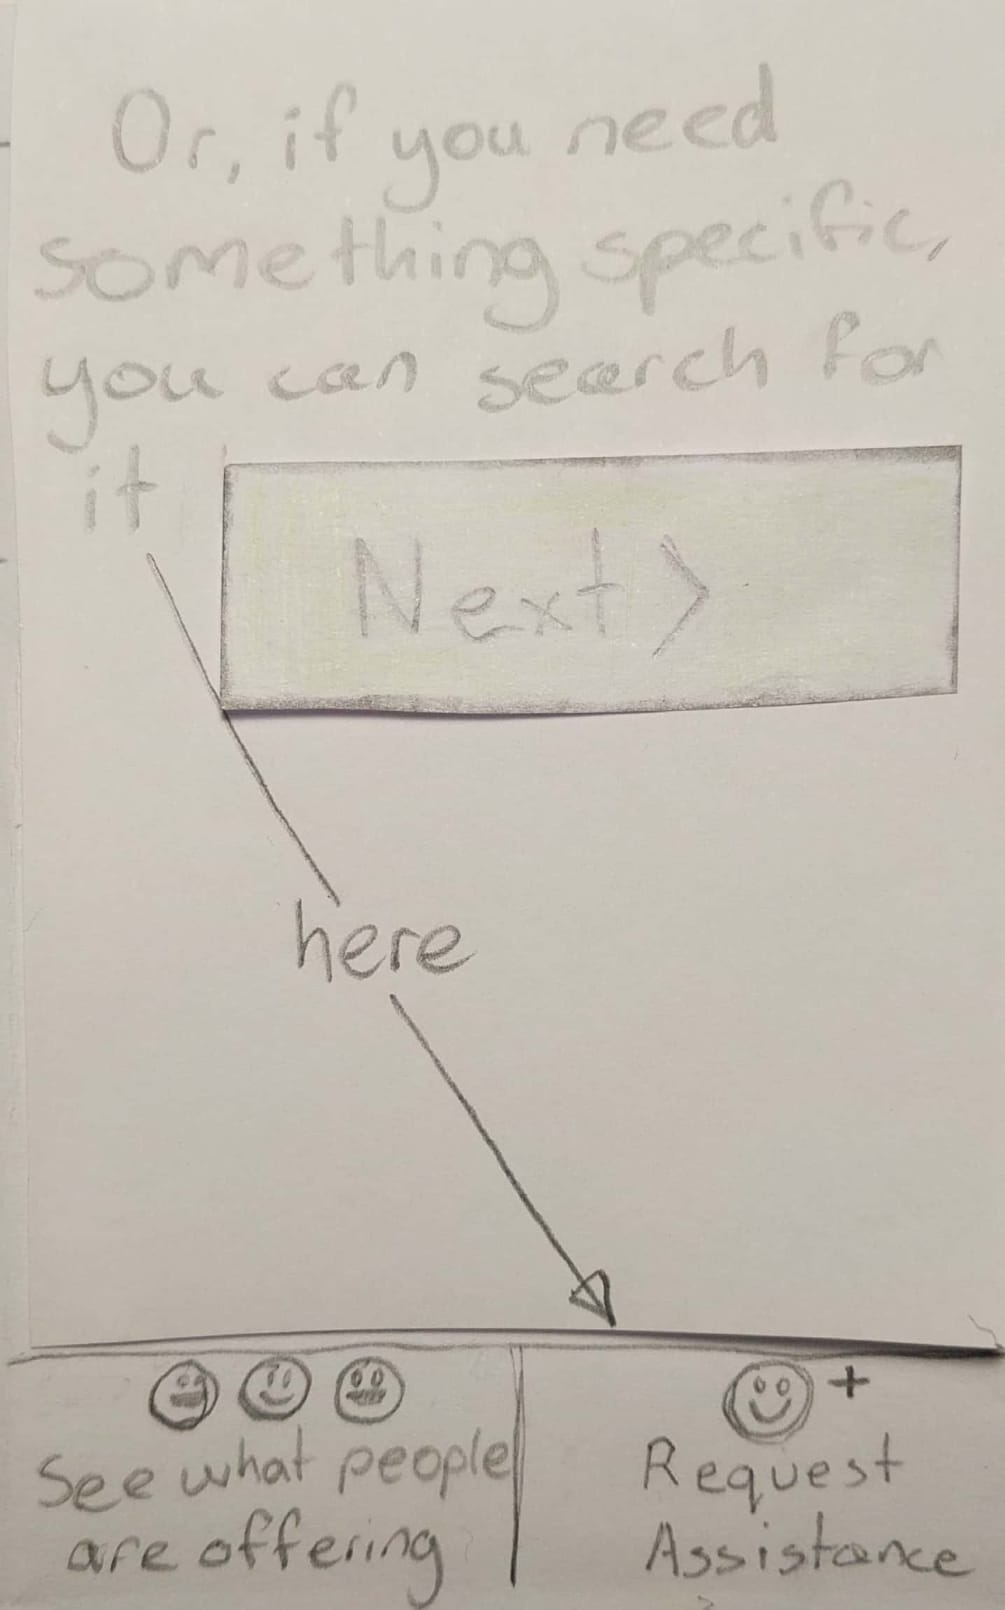 Or, if you need
something specific,
you can search for
it
Next >
here
See what people
are offering
+
Request
Assistance